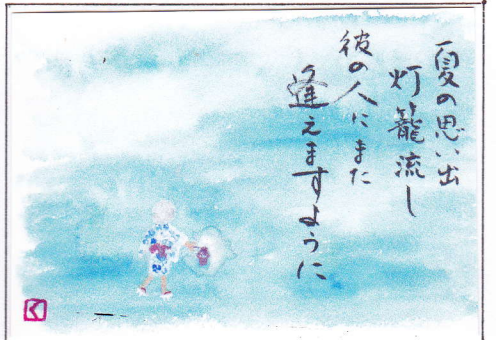 夏の思い出
灯籠流し
彼の人にまた
逢えますように
く